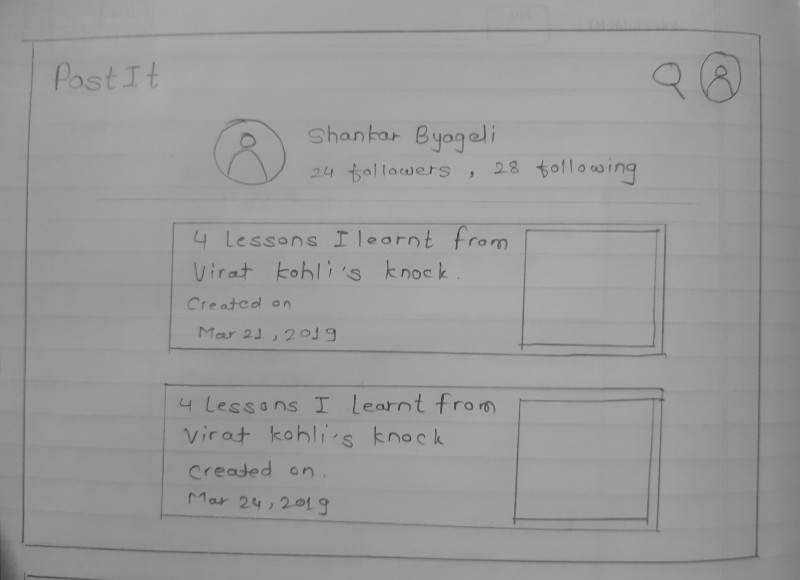 PostIt
Shankar Byageli
24 followers , 28 following
4 Lessons I learnt from
Virat kohli's knock.
Created on
Mar 21, 2019
4 Lessons I Learnt from
Virat kohli's knock
Created on.
Mar 24, 2019